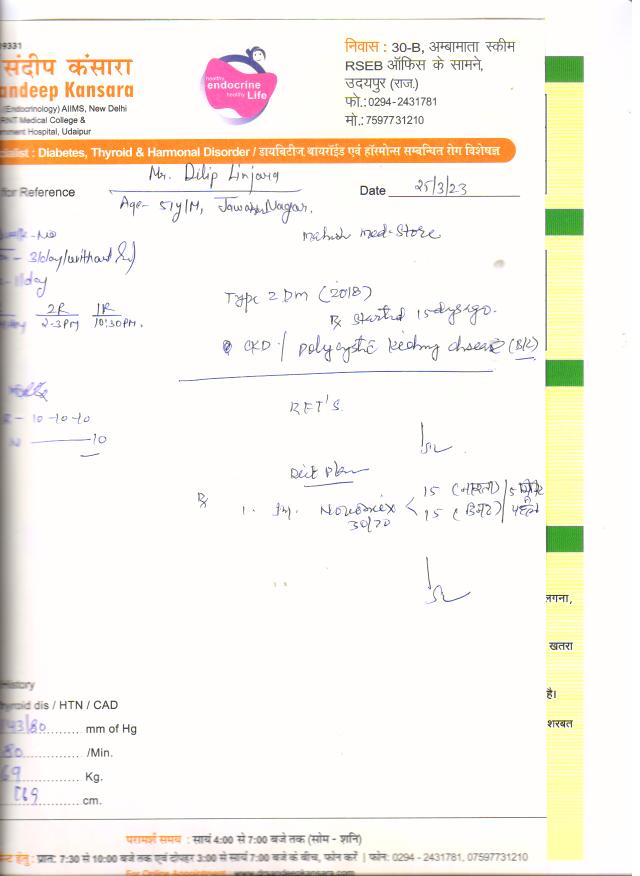 9331
संदीप कंसारा
andeep Kansara
(Endocrinology) AIIMS, New Delhi
RNT Medical College &
ment Hospital, Udaipur
healthy
endocrine
healthy Life
निवास : 30-B, अम्बामाता स्कीम
RSEB ऑफिस के सामने,
उदयपुर (राज.)
फो.:0294-2431781
मो.:7597731210
ialist : Diabetes, Thyroid & Harmonal Disorder / डायबिटीज थायरॉईड एवं हॉरमोन्स सम्बन्धित रोग विशेषज्ञ
for Reference
Mr. Dilip Linjara
Date 25/3/23
Age- 51y/M, Jawahar Nagar.
Mahish Med-Store
3/day/without
1/day
2R 1R
2-3PM 10:30PM.
Type 2 DM (2018)
Rx started 15 days ago.
CKD / Polycystic kidney disease (B/L)
R - 10-10-10
N 10
RFT'S
Diet Plan
Rx
1. Inj. Novomix 30/70 < 15 (नाश्ता)
15 (डिनर)
लगना,
खतरा
है।
शरबत
History
hyroid dis / HTN / CAD
143/80 mm of Hg
80 /Min.
69 Kg.
169 cm.
परामर्श समय : सायं 4:00 से 7:00 बजे तक (सोम - शनि)
न्ट हेतु : प्रात: 7:30 से 10:00 बजे तक एवं दोपहर 3:00 से सायं 7:00 बजे के बीच, फोन करें | फोन: 0294 - 2431781, 07597731210
For Online Appointment : www.drsandeepkansara.com